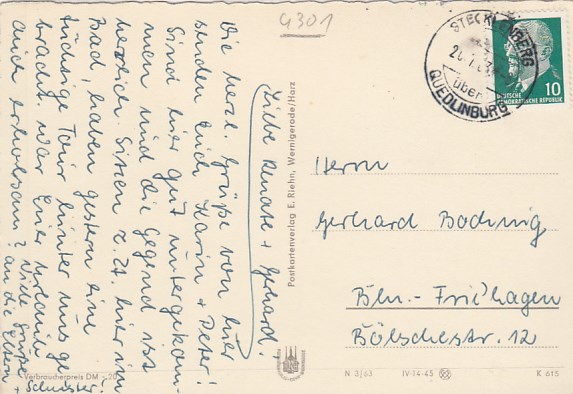 4301
STECKLENBERG
über
QUEDLINBURG
10
DEUTSCHE
DEMOKRATISCHE REPUBLIK
Liebe Renate + Gerhard!
Die herzl. Grüße von hier
senden Euch Karin + Peter!
Sind hier gut untergekom-
men und die Gegend ist
herrlich. Sitzen z. Zt. hier im
Bad, haben gestern eine
tüchtige Tour hinter uns ge-
bracht. War Euer Urlaub
auch erholsam? Viele Grüße
an die Eltern
+ Schwester!
Postkartenverlag E. Riehn, Wernigerode/Harz
Herrn
Gerhard Bodnig
Bln.-Fri hagen
Bölschestr. 12
Verbraucherpreis DM -,20
N 3/63 IV-14-45
K 615